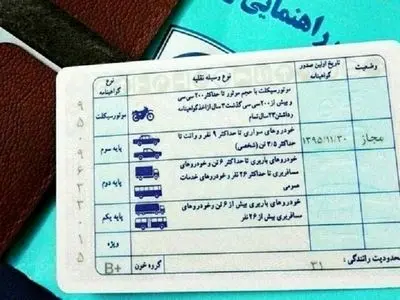 راهنمایی
وضعیت
تاریخ اولین صدور گواهینامه
نوع وسیله نقلیه
نوع گواهینامه
موتورسیکلت با حجم موتور تا حداکثر ۲۰۰ سی سی
و بیش از ۲۰۰ سی سی گذشت ۳ سال از اخذ گواهینامه
وداشتن ۲۳ سال تمام
موتورسیکلت
مجاز
۱۳۹۵/۱۱/۳۰
خودروهای سواری تا حداکثر ۹ نفر و وانت تا
حداکثر ۳/۵ تن (شخصی)
پایه سوم
خودروهای باربری تا حداکثر ۶ تن و خودروهای
مسافربری تا حداکثر ۲۶ نفر و خودروهای خدمات
عمومی
پایه دوم
خودروهای باربری بیش از ۶ تن و خودروهای
مسافربری بیش از ۲۶ نفر
پایه یکم
ویژه
محدودیت رانندگی :
۳۱
گروه خون :
B+